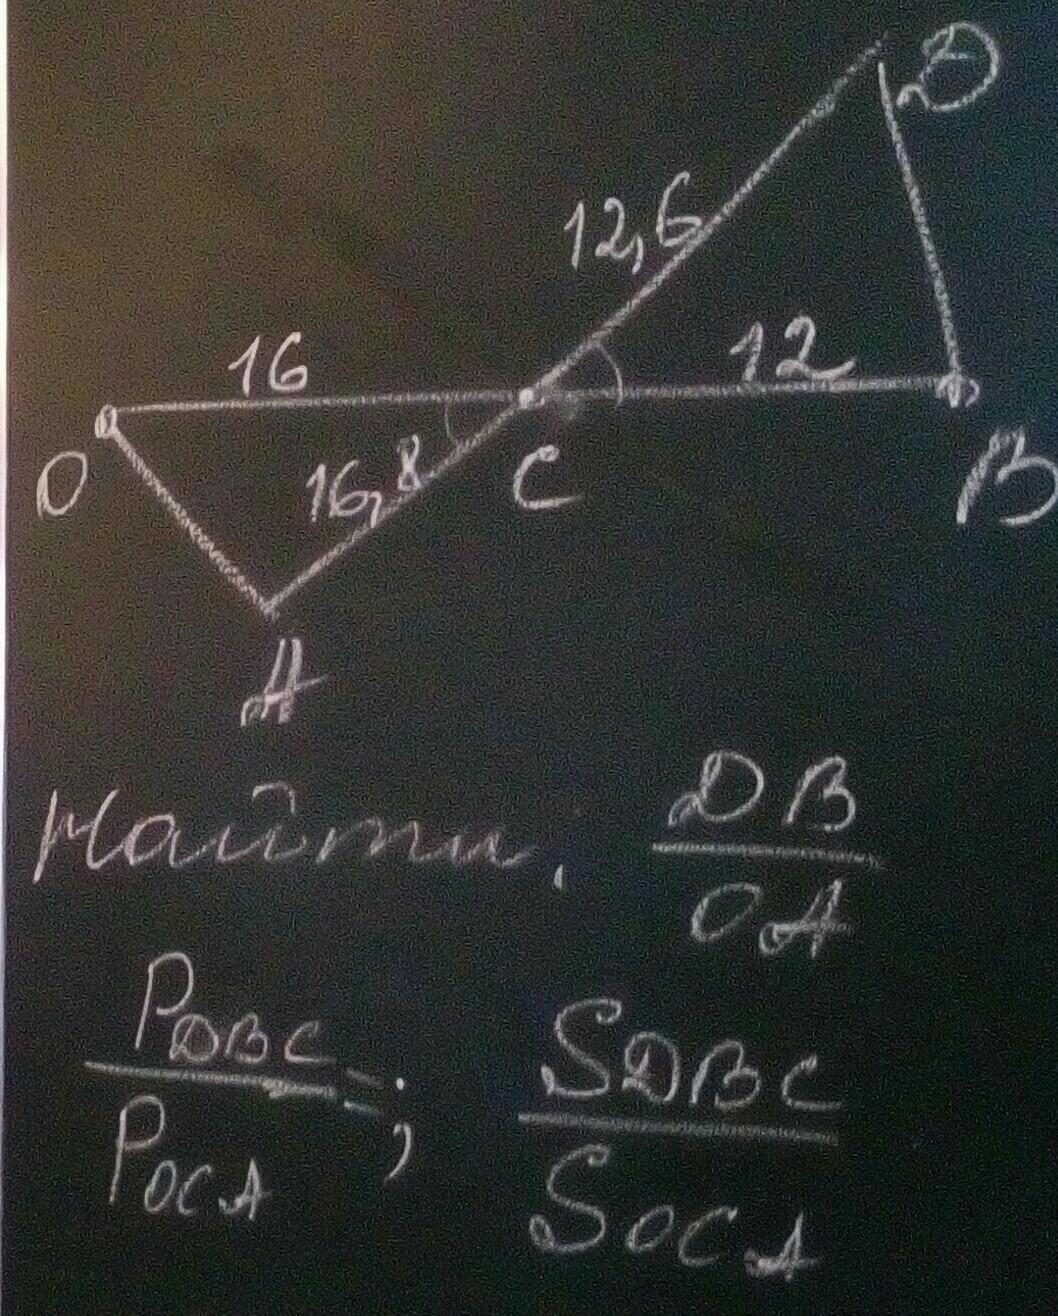 D
12,6
16
12
O
16,8
C
B
A
Найти.
DB
OA
P DBC
=;
P OCA
S DBC
S OCA